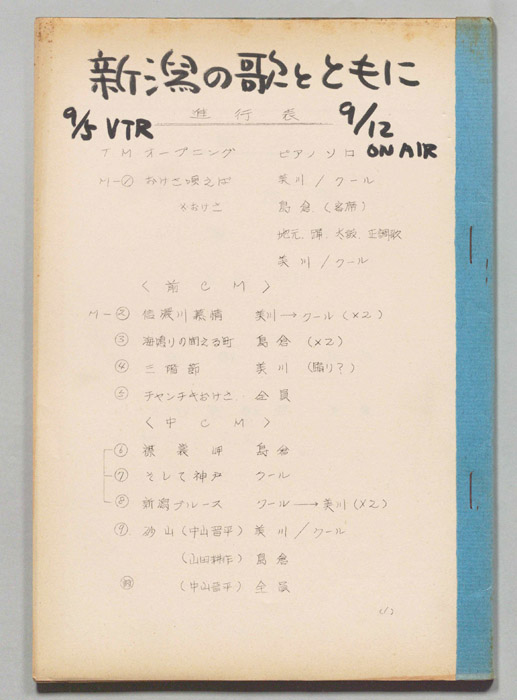 新潟の歌とともに
9/5 VTR
9/12 ON AIR
進行表
TM オープニング ピアノソロ
M-① おけさ唄えば 美川/クール
〃おけさ 島倉(客席)
地元、踊、太鼓、正調歌
美川/クール
〈前CM〉
M-② 信濃川慕情 美川→クール(×2)
③ 海鳴りの聞える町 島倉(×2)
④ 三階節 美川(踊り?)
⑤ チャンチキおけさ 全員
〈中CM〉
⑥ 裸義岬 島倉
⑦ そして神戸 クール
⑧ 新潟ブルース クール→美川(×2)
⑨ 砂山(中山晋平) 美川/クール
(山田耕作) 島倉
(中山晋平) 全員